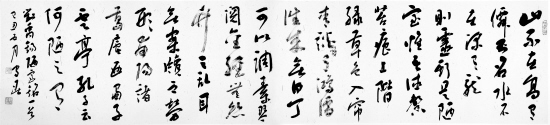 山不在高有
僊則名水不
在深有龍
則靈斯是陋
室惟吾德馨
苔痕上階
綠草色入帘
青談笑有鴻儒
往來無白丁
可以調素琴
閱金經無絲
竹之亂耳
無案牘之勞
形南陽諸
葛廬西蜀子
雲亭孔子云
何陋之有
劉禹錫陋室銘一首